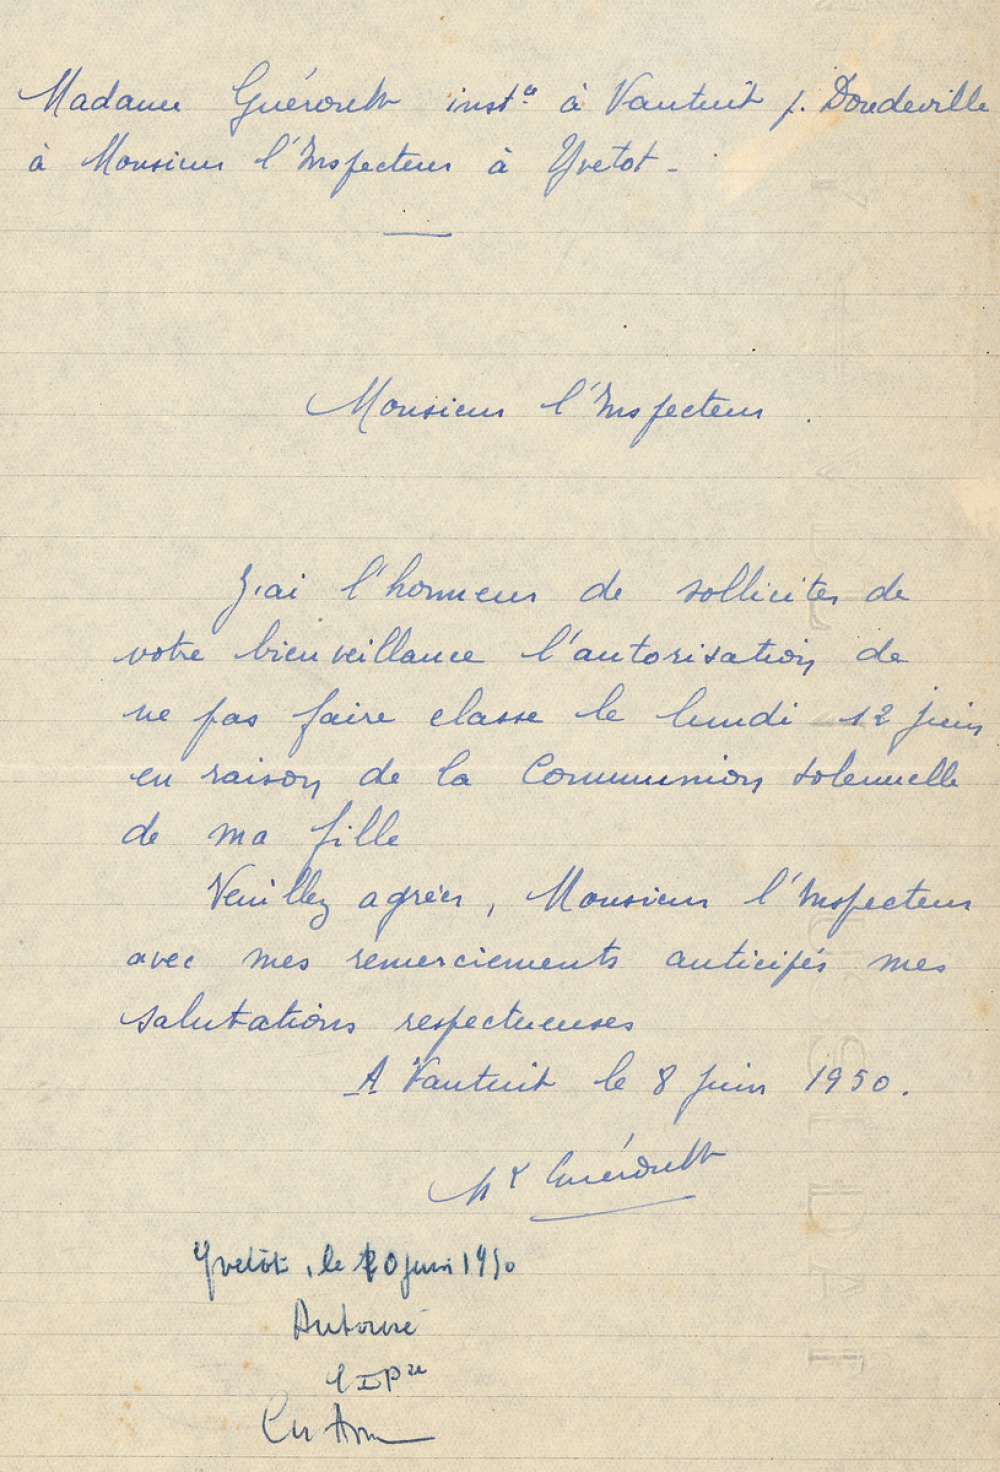 Madame Guéroult inst.ce à Vautuit p. Doudeville
à Monsieur l'Inspecteur à Yvetot -
Monsieur l'Inspecteur.
J'ai l'honneur de solliciter de
votre bienveillance l'autorisation de
ne pas faire classe le lundi 12 juin
en raison de la Communion solennelle
de ma fille
Veuillez agréer, Monsieur l'Inspecteur
avec mes remerciements anticipés mes
salutations respectueuses
A Vautuit le 8 juin 1950.
Guéroult
Yvetot, le 10 juin 1950
Autorisé